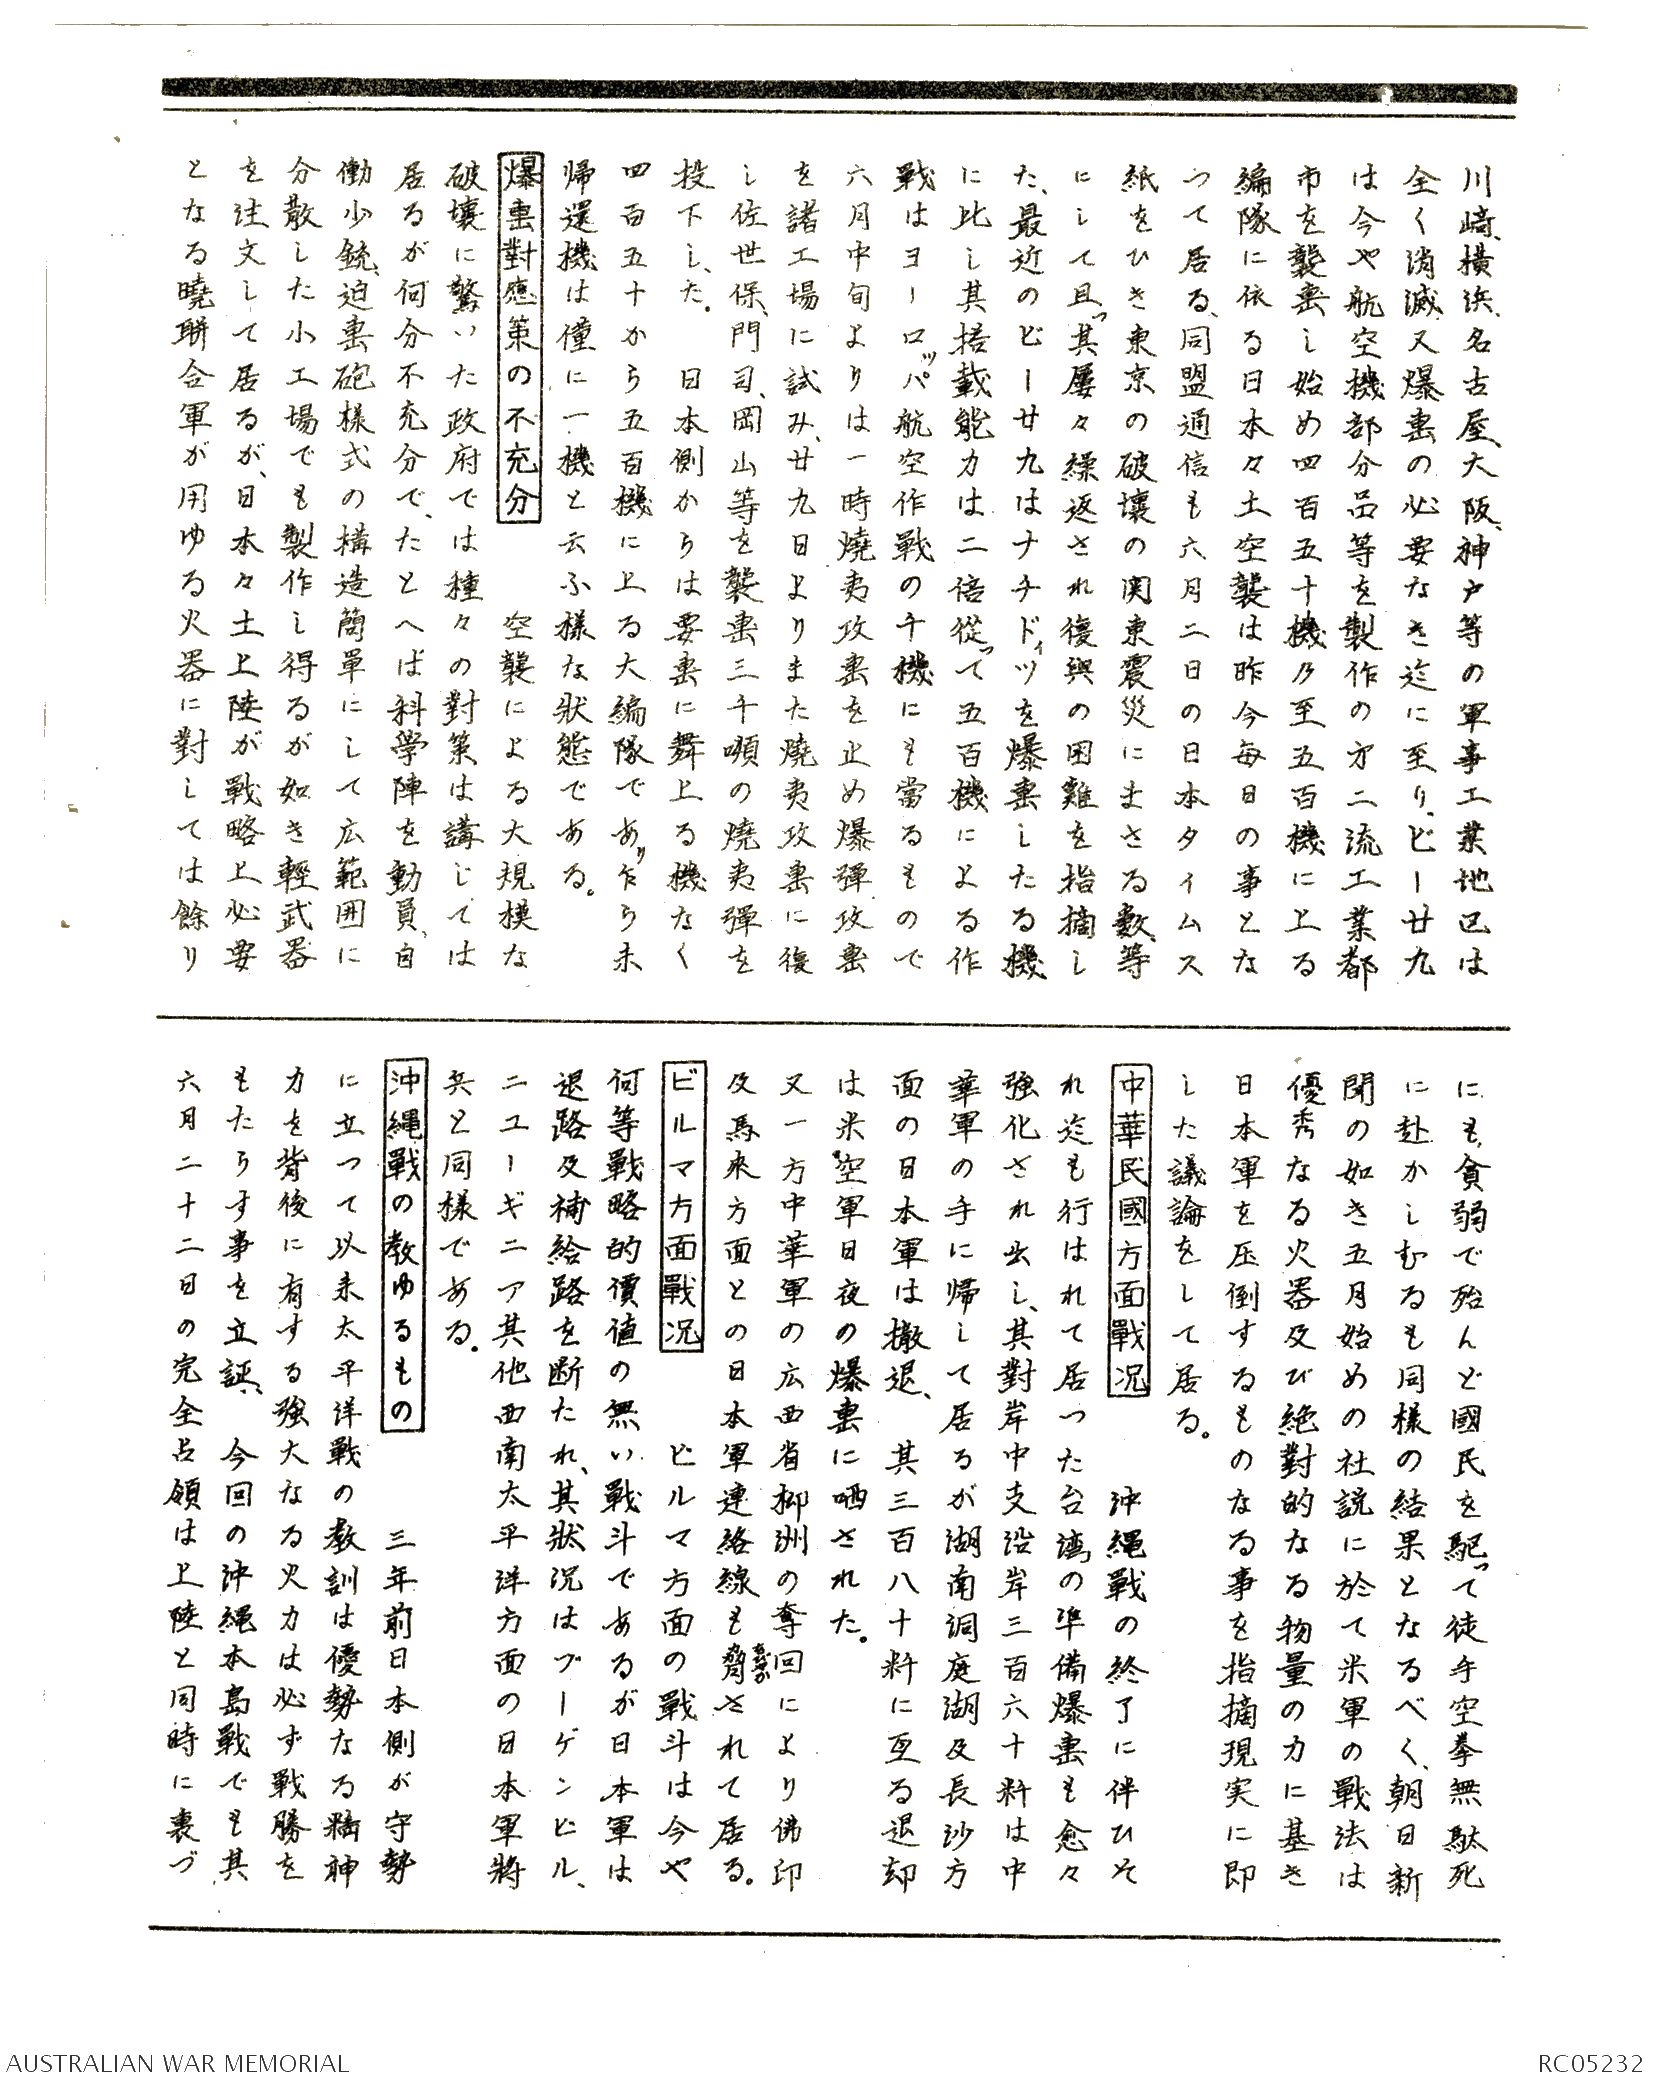 川﨑、横浜、名古屋、大阪、神戸等の軍事工業地区は
全く消滅、又爆撃の必要なき迄に至り、ビー廿九
は今や航空機部分品等を製作の才二流工業都
市を襲撃し始め四百五十機乃至五百機に上る
編隊に依る日本々土空襲は昨今毎日の事とな
つて居る、同盟通信も六月二日の日本タイムス
紙をひき東京の破壊の関東震災にまさる数等
にして且つ其屡々繰返され復興の困難を指摘し
た、最近のビー廿九はナチドイツを爆撃したる機
に比し其搭載能力は二倍従つて五百機による作
戦はヨーロッパ航空作戦の千機にも當るもので
六月中旬よりは一時燒夷攻撃を止め爆彈攻撃
を諸工場に試み、廿九日よりまた燒夷攻撃に復
し佐世保、門司、岡山等を襲撃三千噸の燒夷彈を
投下した。　日本側からは要撃に舞上る機なく
四百五十から五百機に上る大編隊であり乍ら未
帰還機は僅に一機と云ふ様な狀態である。
爆撃對應策の不充分　空襲による大規模な
破壊に驚いた政府では種々の對策は講じては
居るが何分不充分で、たとへば科學陣を動員、自
働少銃、迫撃砲様式の構造簡單にして広範囲に
分散した小工場でも製作し得るが如き輕武器
を注文して居るが、日本々土上陸が戦略上必要
となる曉聯合軍が用ゆる火器に對しては餘り
にも貧弱で殆んど國民を駆つて徒手空拳無駄死
に赴かしむるも同様の結果となるべく、朝日新
聞の如き五月始めの社説に於て米軍の戦法は
優秀なる火器及び絶對的なる物量の力に基き
日本軍を圧倒するものなる事を指摘現実に即
した議論をして居る。
中華民國方面戰況　沖縄戰の終了に伴ひそ
れ迄も行はれて居つた台湾の準備爆撃も愈々
強化され出し、其對岸中支沿岸三百六十粁は中
華軍の手に帰して居るが湖南洞庭湖及長沙方
面の日本軍は撤退、其三百八十粁に亙る退却
は米空軍日夜の爆撃に哂された。
又一方中華軍の広西省柳洲の奪回により佛印
及馬来方面との日本軍連絡線も脅かされて居る。
ビルマ方面戰況　ビルマ方面の戰斗は今や
何等戰略的價値の無い戰斗であるが日本軍は
退路及補給路を断たれ、其狀況はブーゲンビル、
ニユーギニア其他西南太平洋方面の日本軍將
兵と同様である。
沖縄戰の教ゆるもの　三年前日本側が守勢
に立つて以来太平洋戰の教訓は優勢なる精神
力を背後に有する強大なる火力は必ず戰勝を
もたらす事を立証、今回の沖縄本島戰でも其
六月二十二日の完全占領は上陸と同時に裏づ
AUSTRALIAN WAR MEMORIAL
RC05232